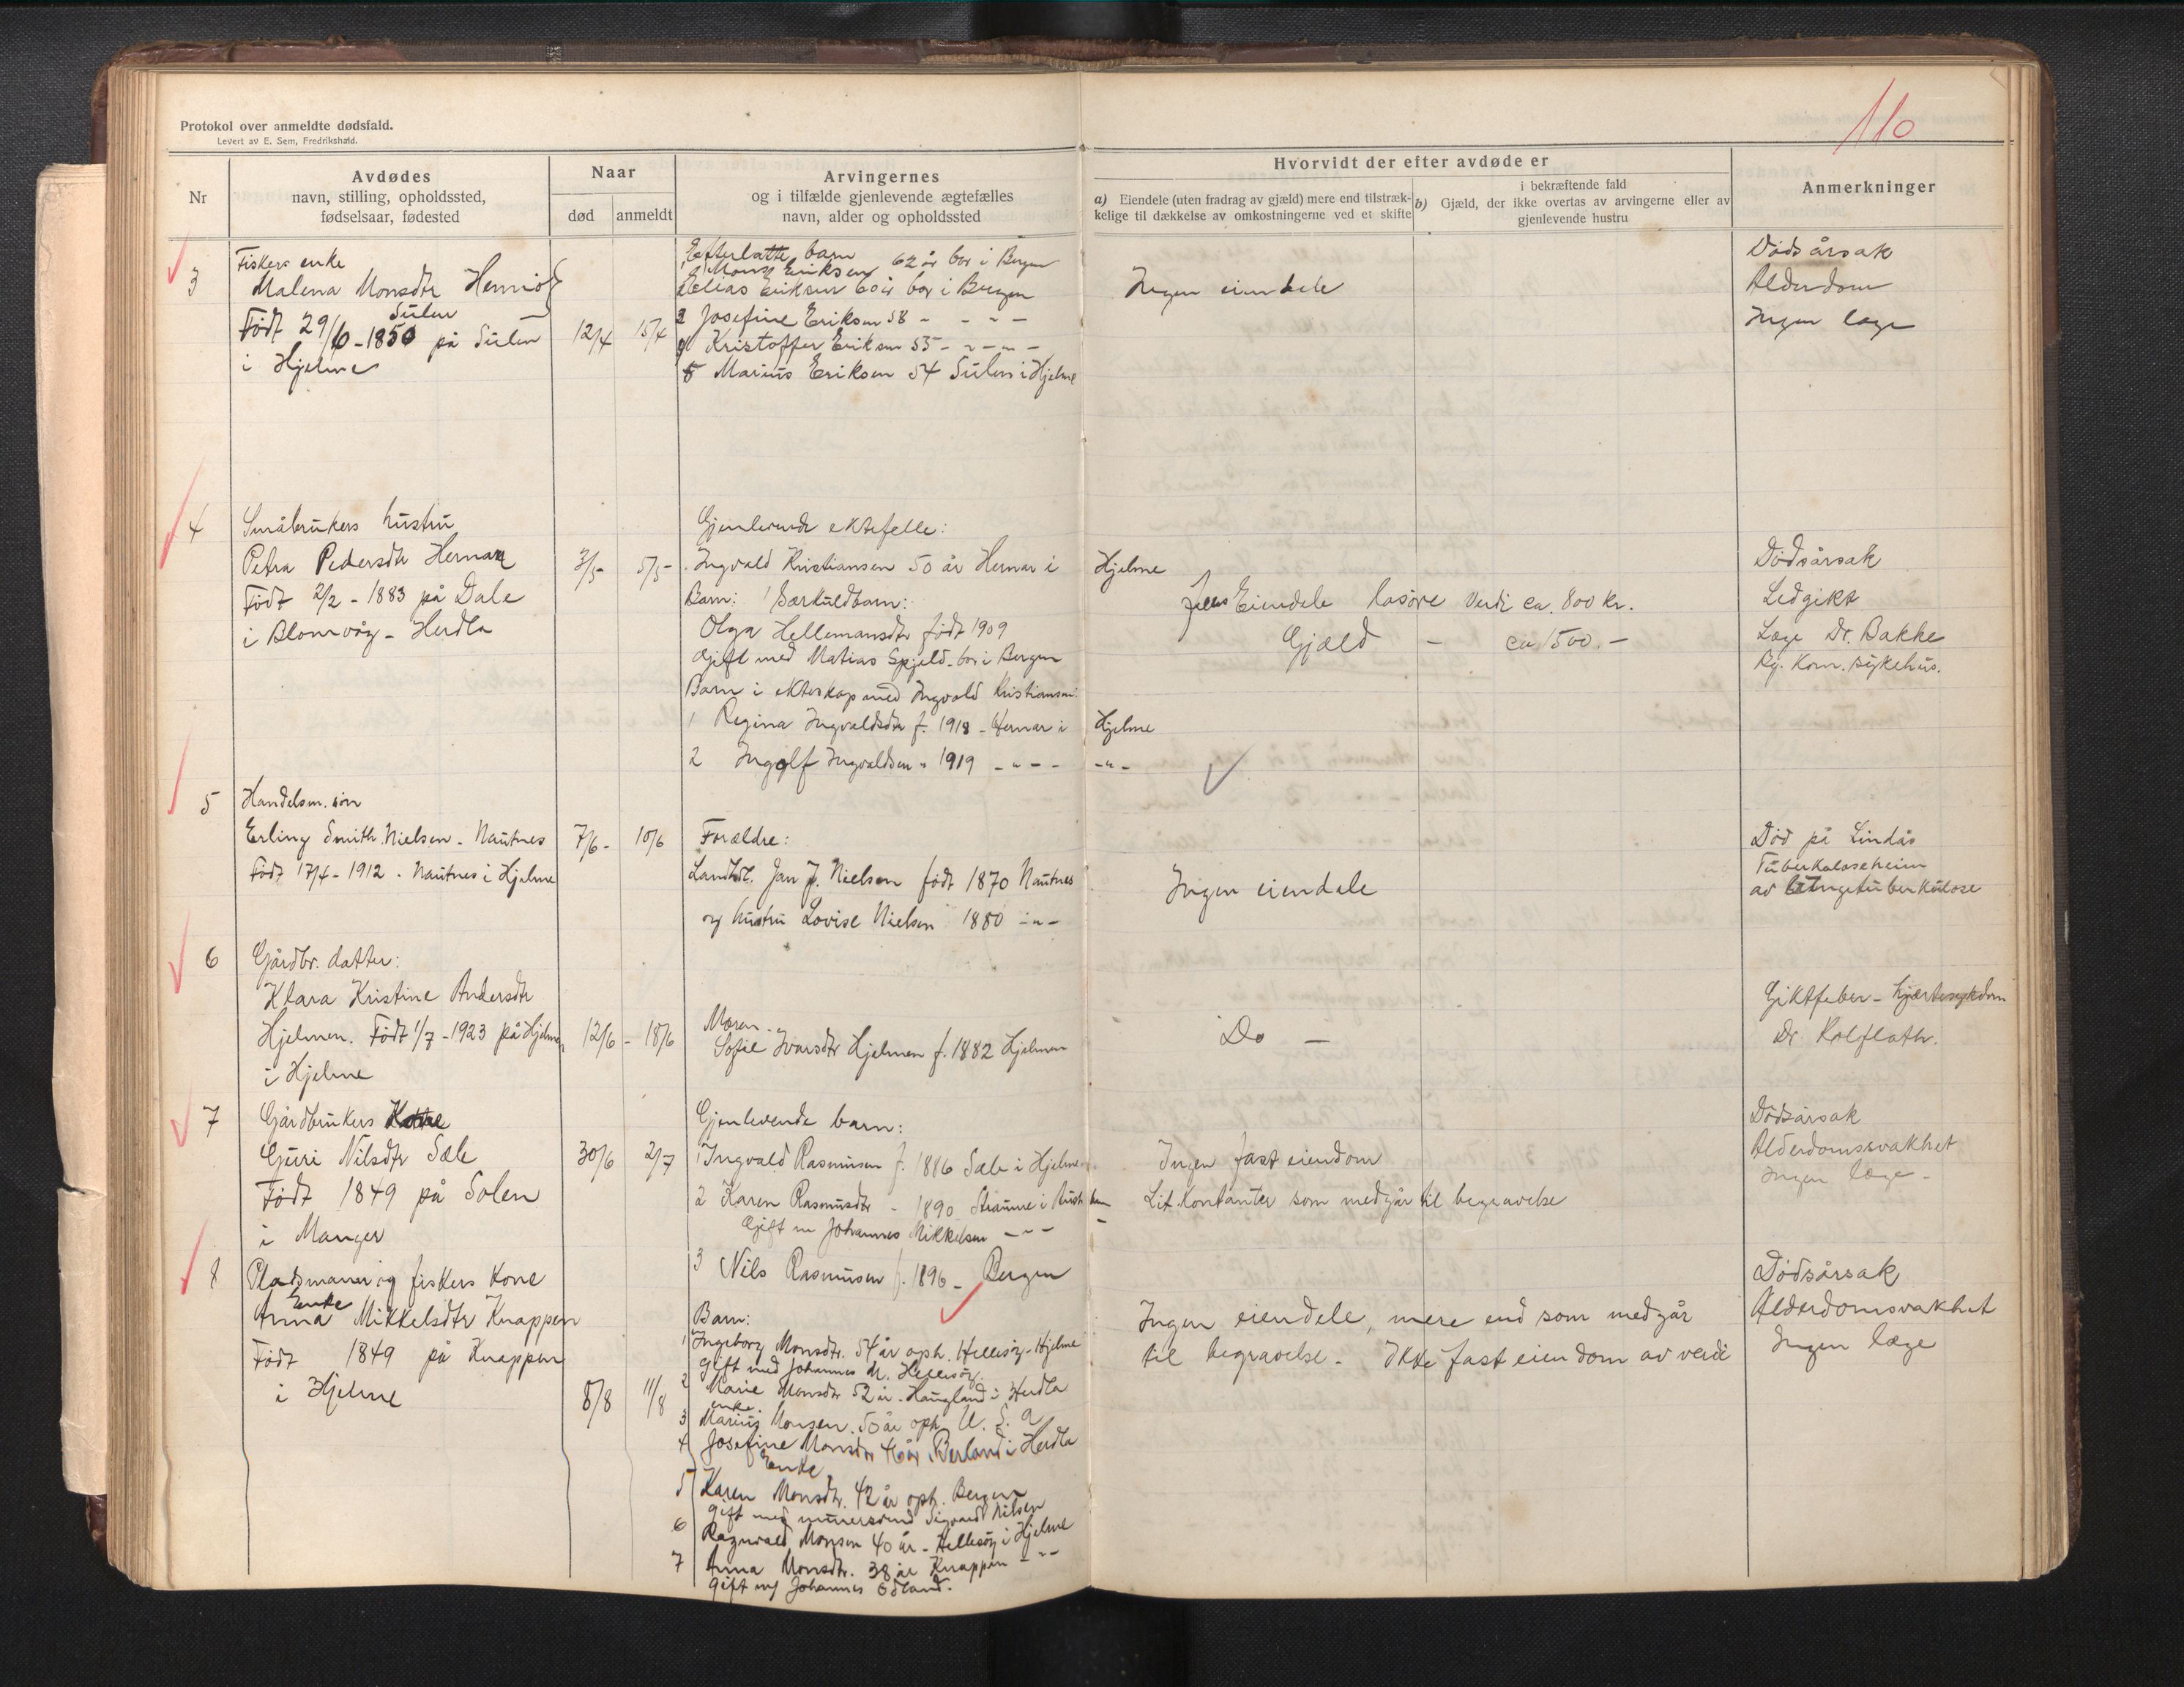 110
Protokol over anmeldte dødsfald.
Levert av E. Sem, Fredrikshald.
Nr
Avdødes
navn, stilling, opholdssted,
fødselsaar, fødested
Naar
død
anmeldt
Arvingernes
og i tilfælde gjenlevende ægtefælles
navn, alder og opholdssted
Hvorvidt der efter avdøde er
a) Eiendele (uten fradrag av gjæld) mere end tilstræk-
kelige til dækkelse av omkostningerne ved et skifte
i bekræftende fald
b) Gjæld, der ikke overtas av arvingerne eller av
gjenlevende hustru
Anmerkninger
3
Fiskers enke
Malena Monsdtr
Sulen
Født 29/10-1850 på Sulen
i Hjelme
12/4
15/4
Efterlatte barn
1 Mons Eriksen 62 år bor i Bergen
2 Elias Eriksen 60 år bor i Bergen
3 Josefine Eriksen 58 - - " -
4 Kristoffer Eriksen 55 - " - " -
5 Marius Eriksen 54 Sulen i Hjelme
Ingen eiendele
Dødsårsak
Alderdom
Ingen læge
4
Småbrukers hustru
Petra Pedersdtr Hernar
Født 2/2 - 1883 på Dale
i Blomvåg - Herdla
3/5
5/5
Gjenlevende ektefelle:
Ingvald Kristiansen 50 år Hernar i Hjelme
Barn: 1 Særkuldbarn:
Olga Hellemansdtr født 1909
Gift med Matias Spjeld - bor i Bergen
Barn i ekteskap med Ingvald Kristiansen:
1 Regina Ingvaldsdtr f. 1918 - Hernar i Hjelme
2 Ingolf Ingvaldsen " 1919 - " - - - " -
Eiendele løsøre Verdi ca. 800 kr.
Gjæld - ca 1500.-
Dødsårsak
Ledgikt
Læge Dr. Bakke
Bg. Kom. sykehus.
5
Handelsm. søn
Erling Smith Nielsen - Nautnes
Født 17/4 - 1912 - Nautnes i Hjelme
7/6-
10/6
Forældre:
Landh. Jan J. Nielsen født 1870 Nautnes
og hustru Lovise Nielsen 1880 - " -
Ingen eiendele
Død på Lindås
Tuberkuloseheim
av lungetuberkulose
6
Gårdbr. datter:
Klara Kristine Andersdtr
Hjelmen. Født 1/7 - 1923 på Hjelmen
i Hjelme
12/6 -
18/6
Moren
Sofie Ivarsdtr Hjelmen f. 1882 Hjelmen
Do -
Giktfeber - hjærtesykdom
Dr
7
Gårdbrukers
Guri Nilsdtr Sæle
Født 1849 på Solen
i Manger
30/6
2/7
Gjenlevende barn:
1 Ingvald Rasmussen f. 1886 Sæle i Hjelme
2 Karen Rasmusdtr - 1890 Straume i
Gift m Johannes Mikkelsen - " -
3 Nils Rasmussen f. 1896 - Bergen
Ingen fast eiendom
Lit kontanter som medgår til begravelse
Dødsårsak
Alderdomssvakhet
Ingen læge -
8
Pladsmann og fiskers kone
Enke
Anna Mikkelsdtr Knappen
Født 1849 på Knappen
i Hjelme
8/8
11/8
Barn:
1 Ingeborg Monsdtr. 54 år oph. Hellesøy - Hjelme
gift med Johannes M. Hellesøy.
2 Marie Monsdtr 52 år - Haugland i Herdla
enke.
3 Marius Monsen. 50 år oph U. S. a
4 Josefine Monsdtr 46 år, Berland i Herdla
Enke
5 Karen Monsdtr. 42 år oph. Bergen
gift med murersvend Sigvard Nilsen
6 Ragnvald Monsen 40 år - Hellesøy i Hjelme
7 Anna Monsdtr. 38 år Knappen - " -
gift m/ Johannes Ødland.
Ingen eiendele, mere end som medgår
til begravelse. Ikke fast eiendom av verdi
Dødsårsak
Alderdomsvakhet
Ingen læge